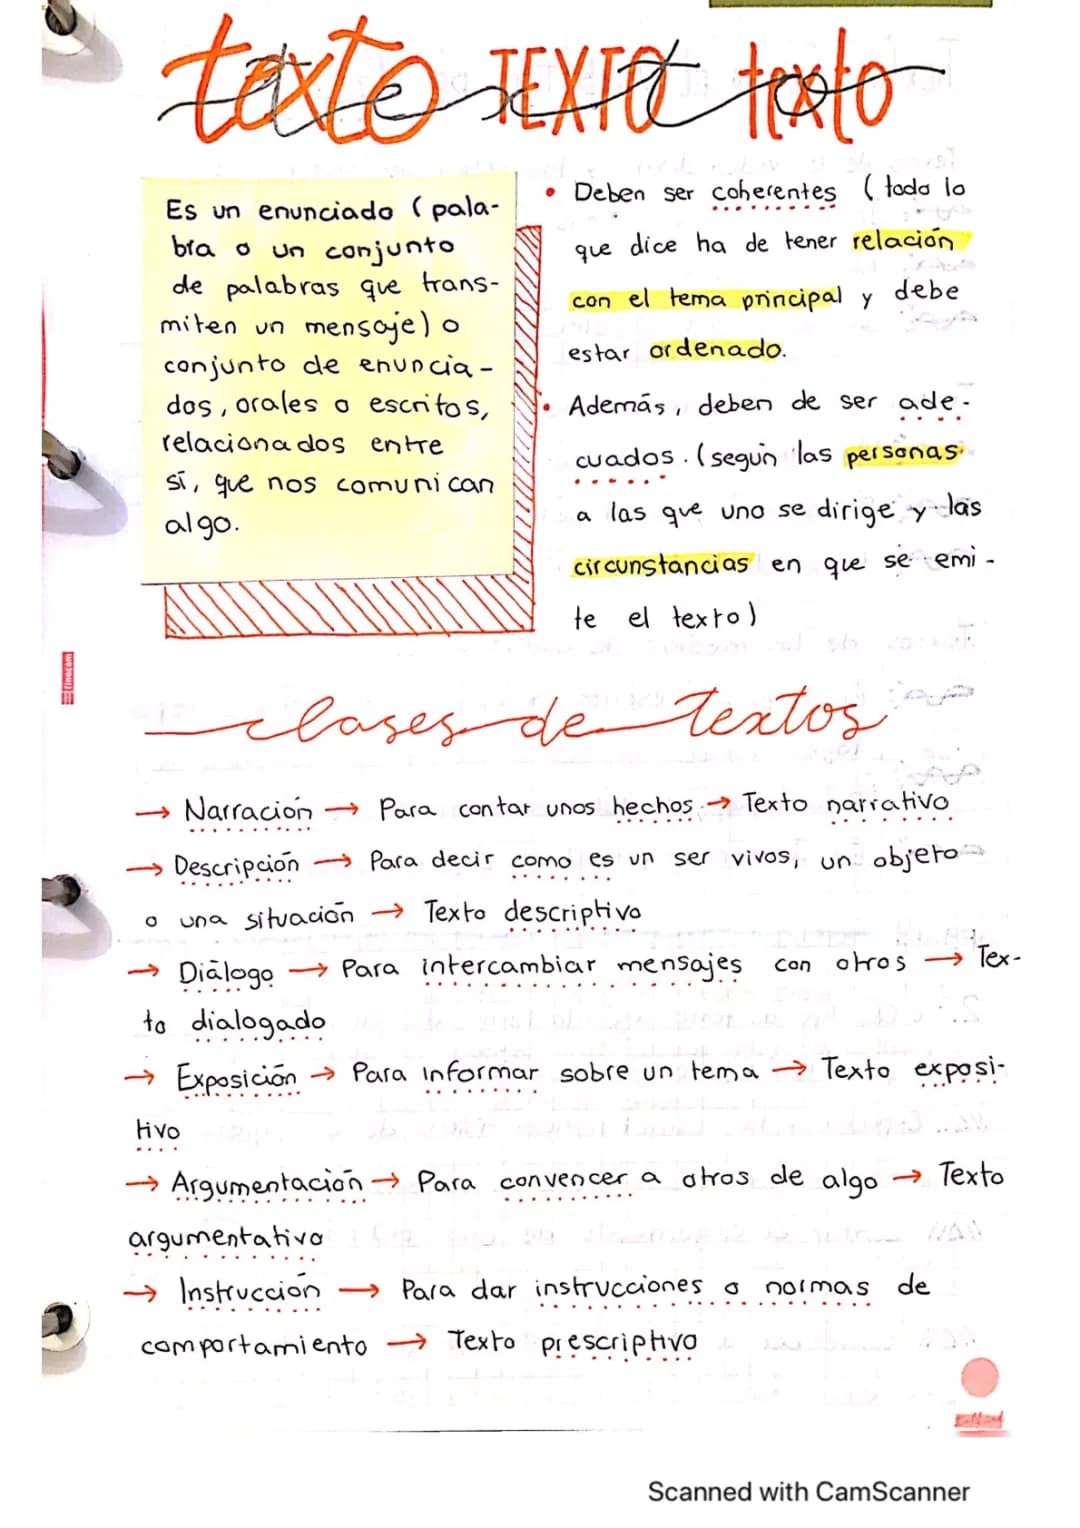 texto TEXTO texto
Es un enunciado (pala-
bra o un conjunto
de palabras que trans-
miten un mensaje) o
conjunto de enuncia-
dos, orales o escritos,
relacionados entre
sí, que nos comunican
algo.
• Deben ser coherentes (todo lo
que dice ha de tener relación
con el tema principal y debe
estar ordenado.
• Además, deben de ser ade-
cuados. (según las personas
a las que uno se dirige y las
circunstancias en que se emi-
te el texto)
finocam
clases de textos
→ Narración → Para contar unos hechos → Texto narrativo
→ Descripción → Para decir como es un ser vivos, un objeto
o una situación → Texto descriptivo
→ Diálogo → Para intercambiar mensajes con otros → Tex-
to dialogado
→ Exposición → Para informar sobre un tema → Texto exposi-
tivo
→ Argumentación → Para convencer a otros de algo → Texto
argumentativo
→ Instrucción → Para dar instrucciones o normas de
comportamiento → Texto prescriptivo
Scanned with CamScanner